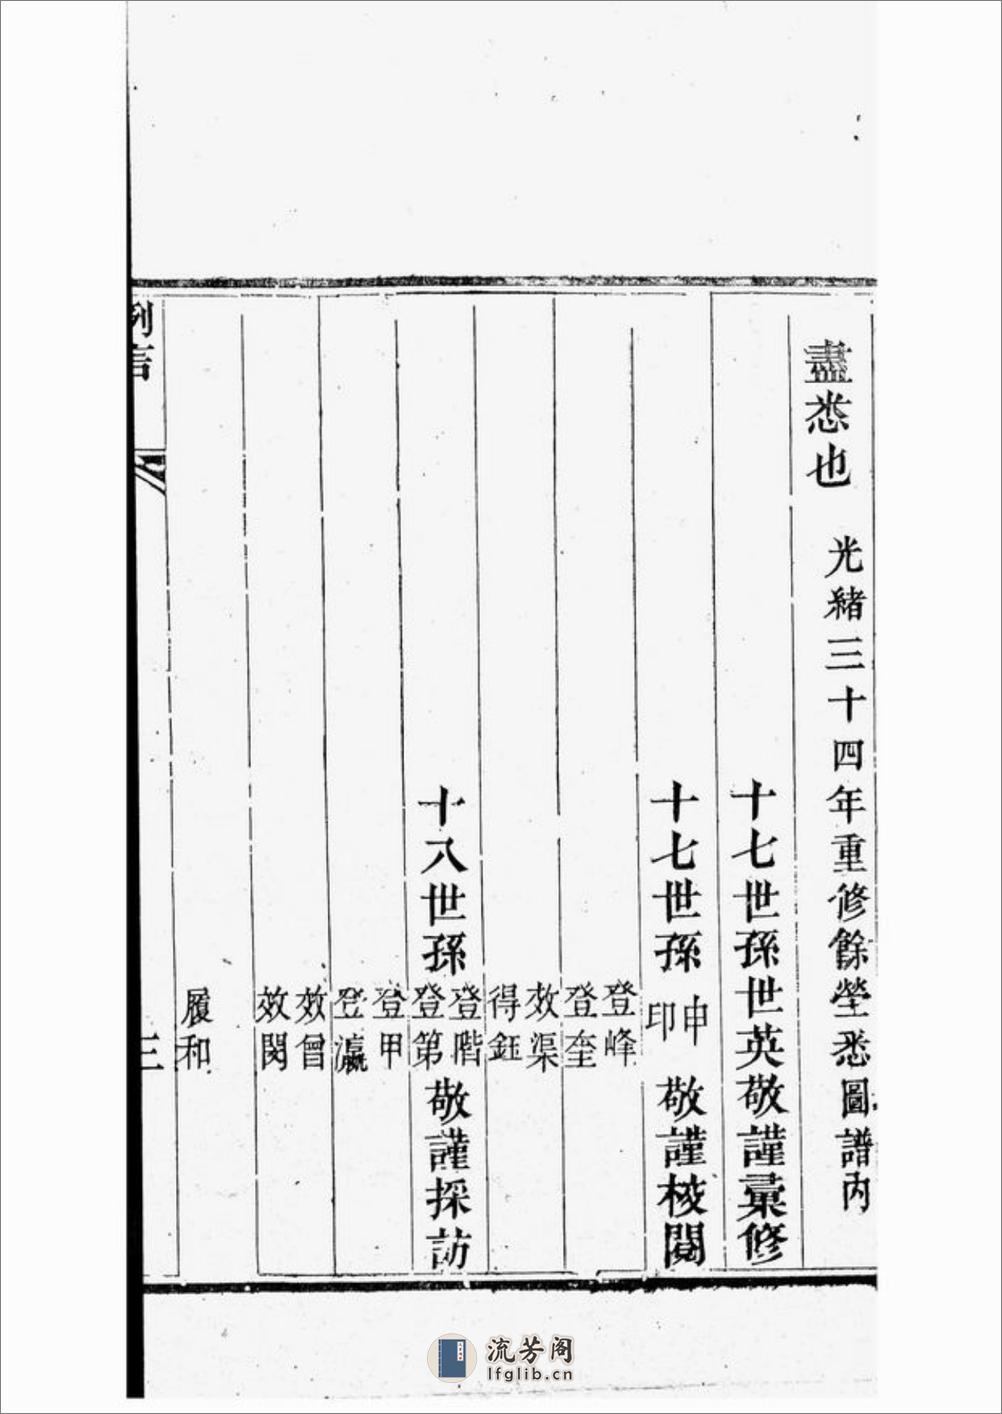 盡悉也
光緒三十四年重修餘塋悉圖譜內
十七世孫世英敬謹彙修
十七世孫
申
印
敬謹校閱
登峰
登奎
效渠
得鈺
十八世孫
登階
登第
敬謹採訪
登甲
登瀛
效曾
效閔
履和
例言
三
流芳阁
lfglib.cn